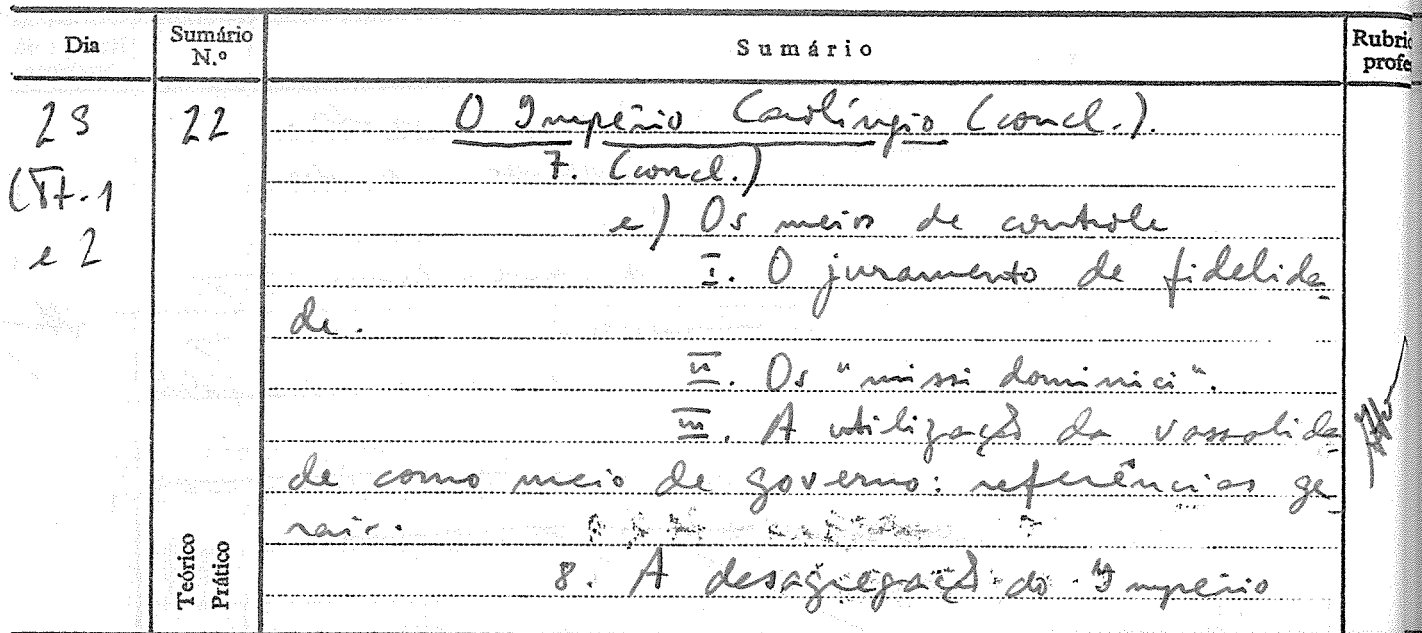 Dia Sumário N.º Sumário Rubric profe
23 22 O Império Carolíngio (concl.).
7. (concl.)
e) Os meios de controle
e 2
I. O juramento de fidelida
de.
II. Os "missi dominici".
III. A utilização da vassalida
de como meio de governo: referências ge
rais.
8. A desagregação do Império
Teórico
Prático